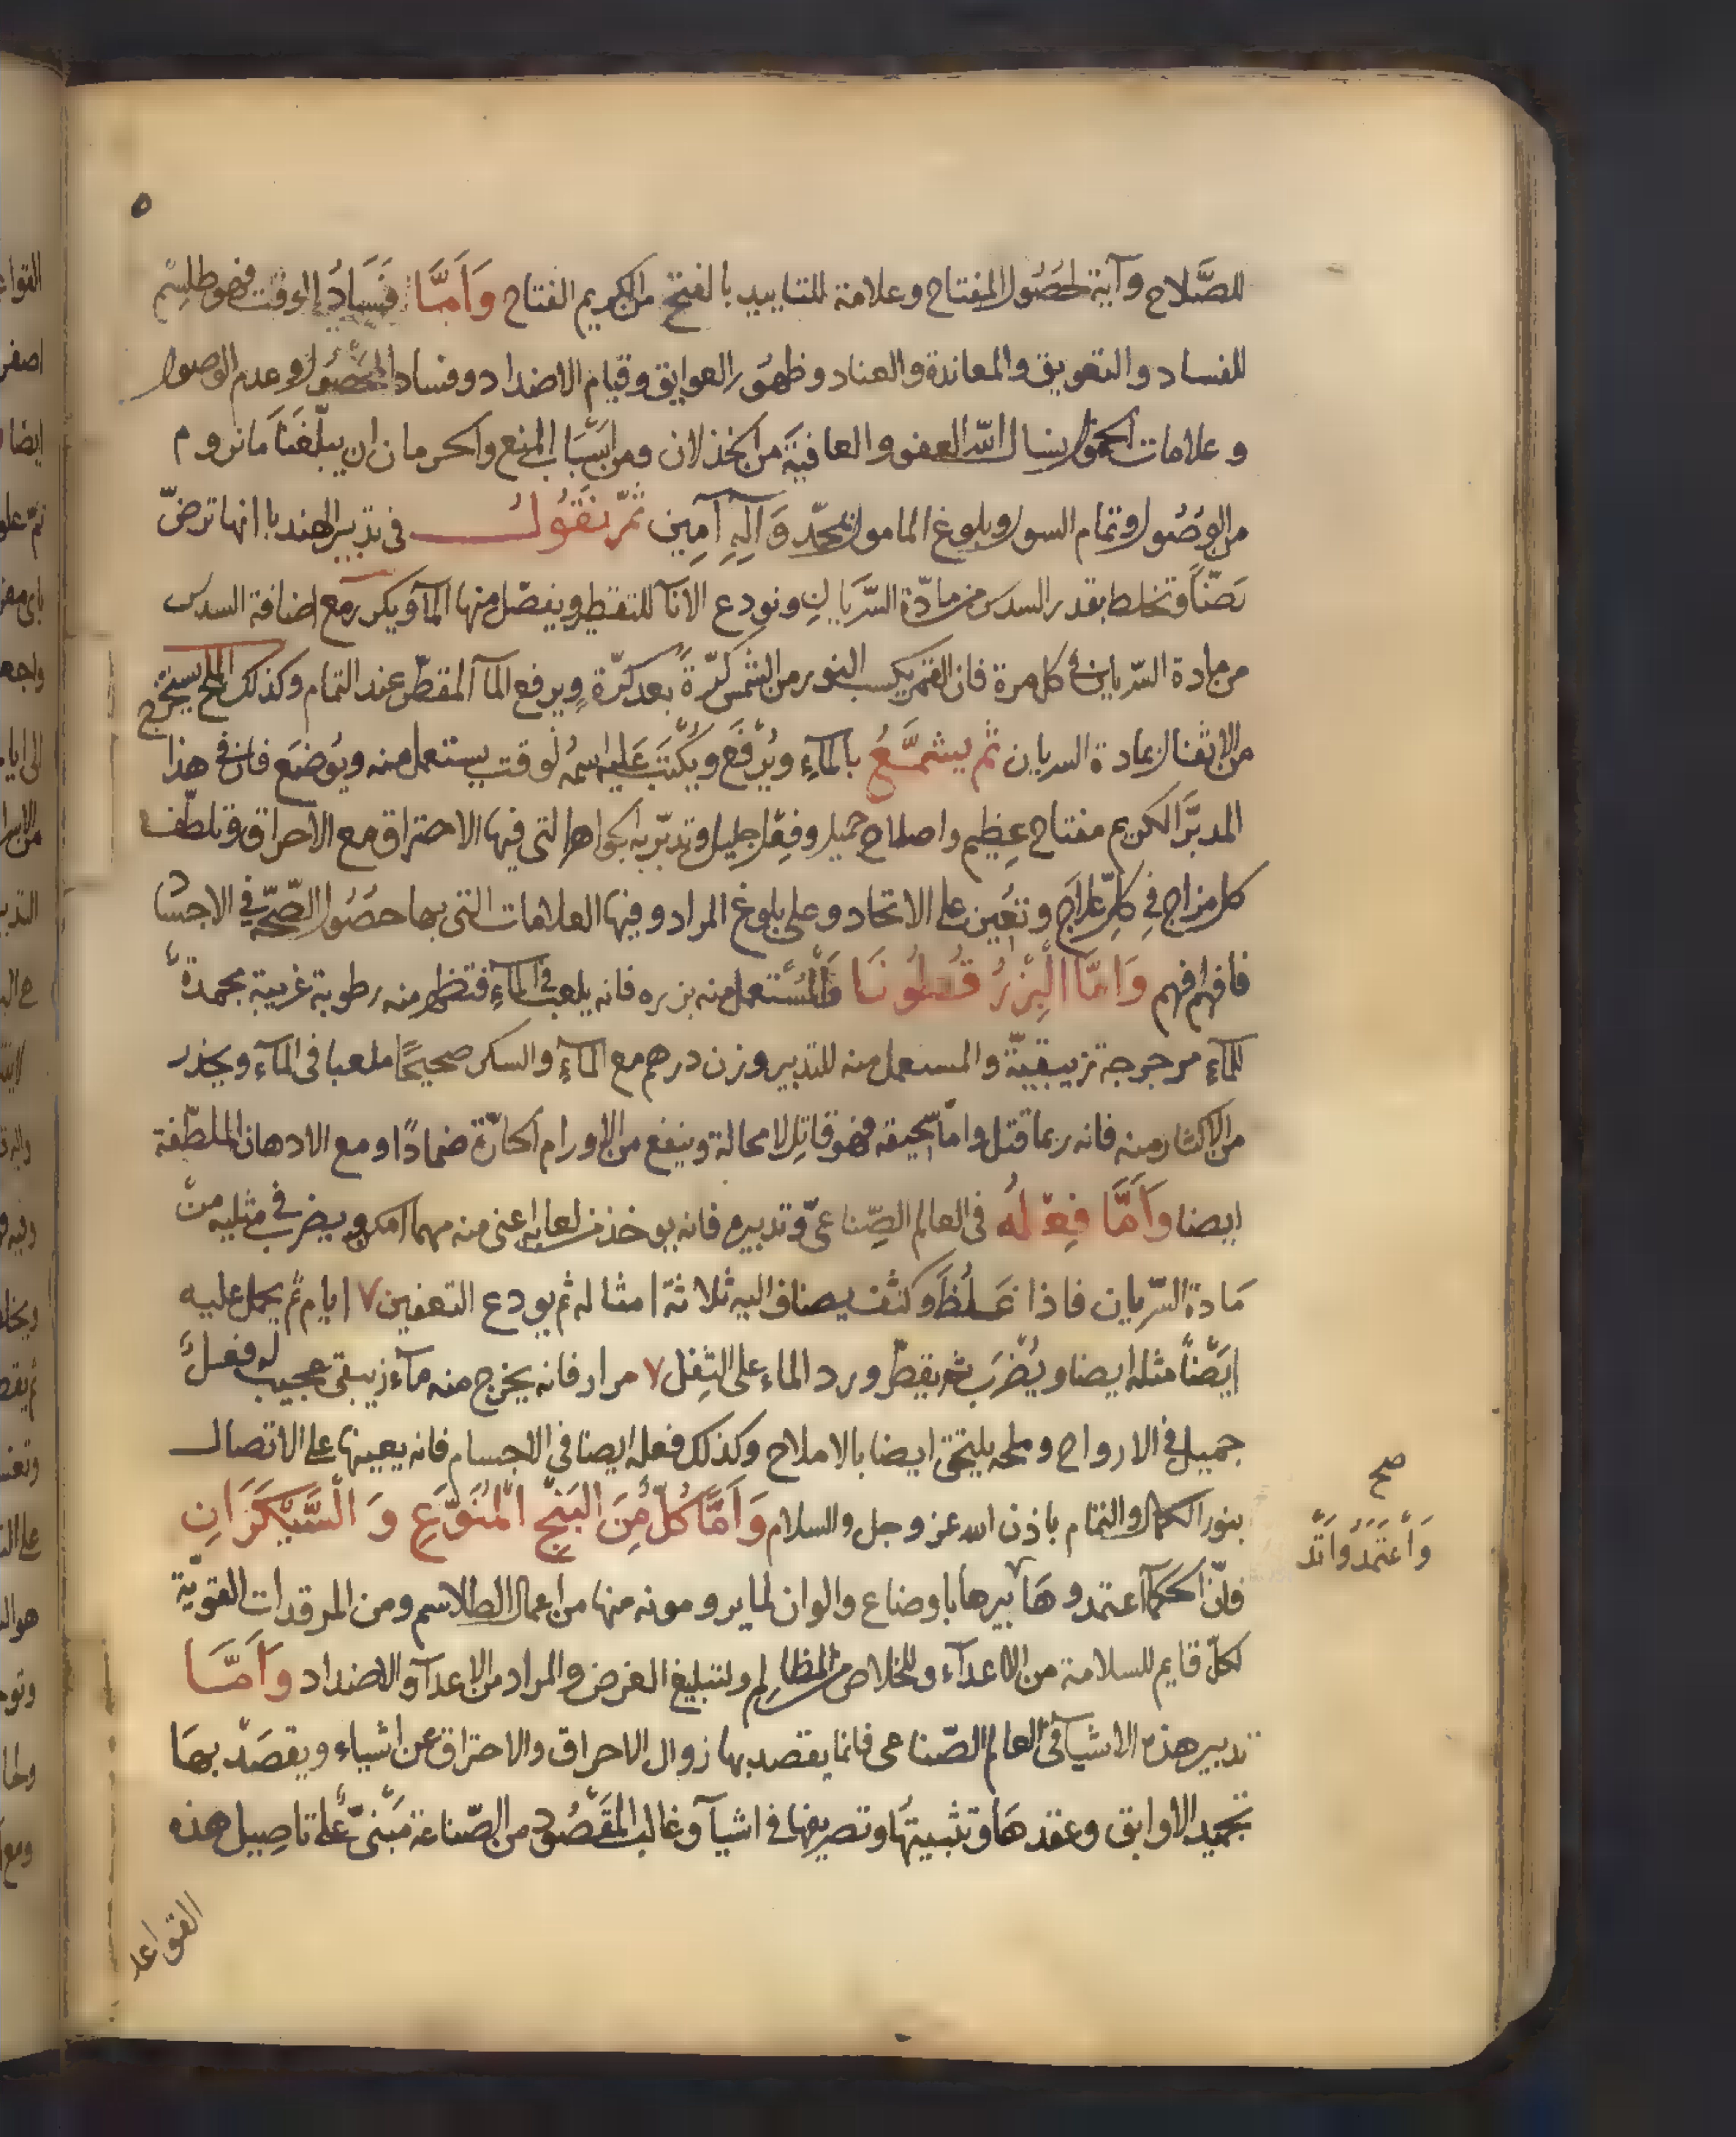 ٥
للصَّلاح وآية لحصُول المفتاح وعلامة للتاييد بالفتح من الكريم الفتاح وَاَمَّا فسَادُ الوقت فهو طلسم
للفساد والتعويق والمعاندة والعناد وظهور العوايق وقيام الاضداد وفساد المحصُول وعدم الوصول
وعلامات نسال الله العفو والعافية من الخذلان ومن اسْبَاب المنع والحرمان ان يبلّغنا ما نروم
من الوصُول وتمام السول وبلوغ المامول بمحمّد وَآلِهِ آمِين ثمّ نقُول في تدبير الهندبا انها ترضّ
رَضّاً وتخلط بقدر السدس من مادّة السّريان ونودع الانآ للتقطير ويفصّل منها المآ ويكرر مع اضافة السدس
من مادة السّريان في كل مرة فان القمر يكسب النور من الشمس كرّةً بعد كرّة ويرفع المآ المقطّر عند التمام وكذلك الملح يستخرج
من الاثفال بمادة السريان ثم يشمَّعُ بالمآءِ ويُرْفَع ويُكْتَبَ عَليه اسمُه لوقت يستعمل منه ويوُضَع فان في هذا
المدبَّر الكريم مفتاح عظِيم واصلاح جميل وفِعْل جليل وتدبّر به الجواهر التي فيها الاحتراق مع الاحراق وتلطّف
كل مزاج فِي كلِّ علاج وتُعين على الاتحاد وعلى بلوغ المراد وفيها العلامات التي بها حصُول الصّحّة في الاجسَاد
فافهم افهم وَامَّا الْبِزرُ قطُونَا فَالْمُسْتعمل منه بزره فانه يلعب في المآءِ فتظهر منه رطوبة غريبة مجمدةً
للمآءِ مرجرجة تزيبقيّة والمستعمل منه للتدبير وزن درهم مع المآءِ والسكر صحيحًا ملعبا في المآء ويحذر
من الاكثار منه فانه ربما قتل وامّا سحيقه فهو قاتل لا محالة وينفع من الاورام الحارّة ضمادًا ومع الادهان الملطّفة
ايضا وَاَمَّا فِعْلهُ في العالم الصِّناعيّ وتدبيره فانه يوخذ من لعابه اعني منه مهما امكن ويضرب في مثليه منْ
مَادة السّريان فاذا غَلُظَ وكثف يضاف اليه ثلاثة امثاله ثم يودع التعفين ٧ ايام ثم يحمل عليه
ايَضًا مثله ايضا ويُضْرَب ثم يقطّر ورد الماء على الثِفل ٧ مرار فانه يخرج منه مآء زيبقى عجيب له فعلٌ
جميل في الارواح وملحه يلتحق ايضا بالاملاح وكذلك فعله ايضا في الاجسام فانه يعينها على الاتصال
بنور الكمال والتمام باذن الله عز وجل والسلام وَاَمَّا كُلّ مِنَ البَنجِ الْمُنَوَّعِ وَ الْسَّيْكَرَانِ
فانّ الحكمآ اعتمدوهَا بيرها باوضاع والوان لما يرومونه منها من اعمال الطلاسم ومن المرقدات القويّة
لكلّ قايم للسلامة من الاعدآء وللخلاص من المظالم ولتبليغ الغرض والمراد من الاعدآ والاضداد وَاَمَّا
تدبير هذه الاشيآ في العالم الصّناعى فانما يقصد بها زوال الاحراق والاحتراق عن اشياء ويقصَد بهَا
تجميد الاوابق وعقدهَا وتثبيتهُا وتصريفها في اشيآ وغالب المقصُود من الصّناعة مَبْنىّ على تاصِيل هذه
صح
وَاْعتَمَدُوا تَدْ
القواعد